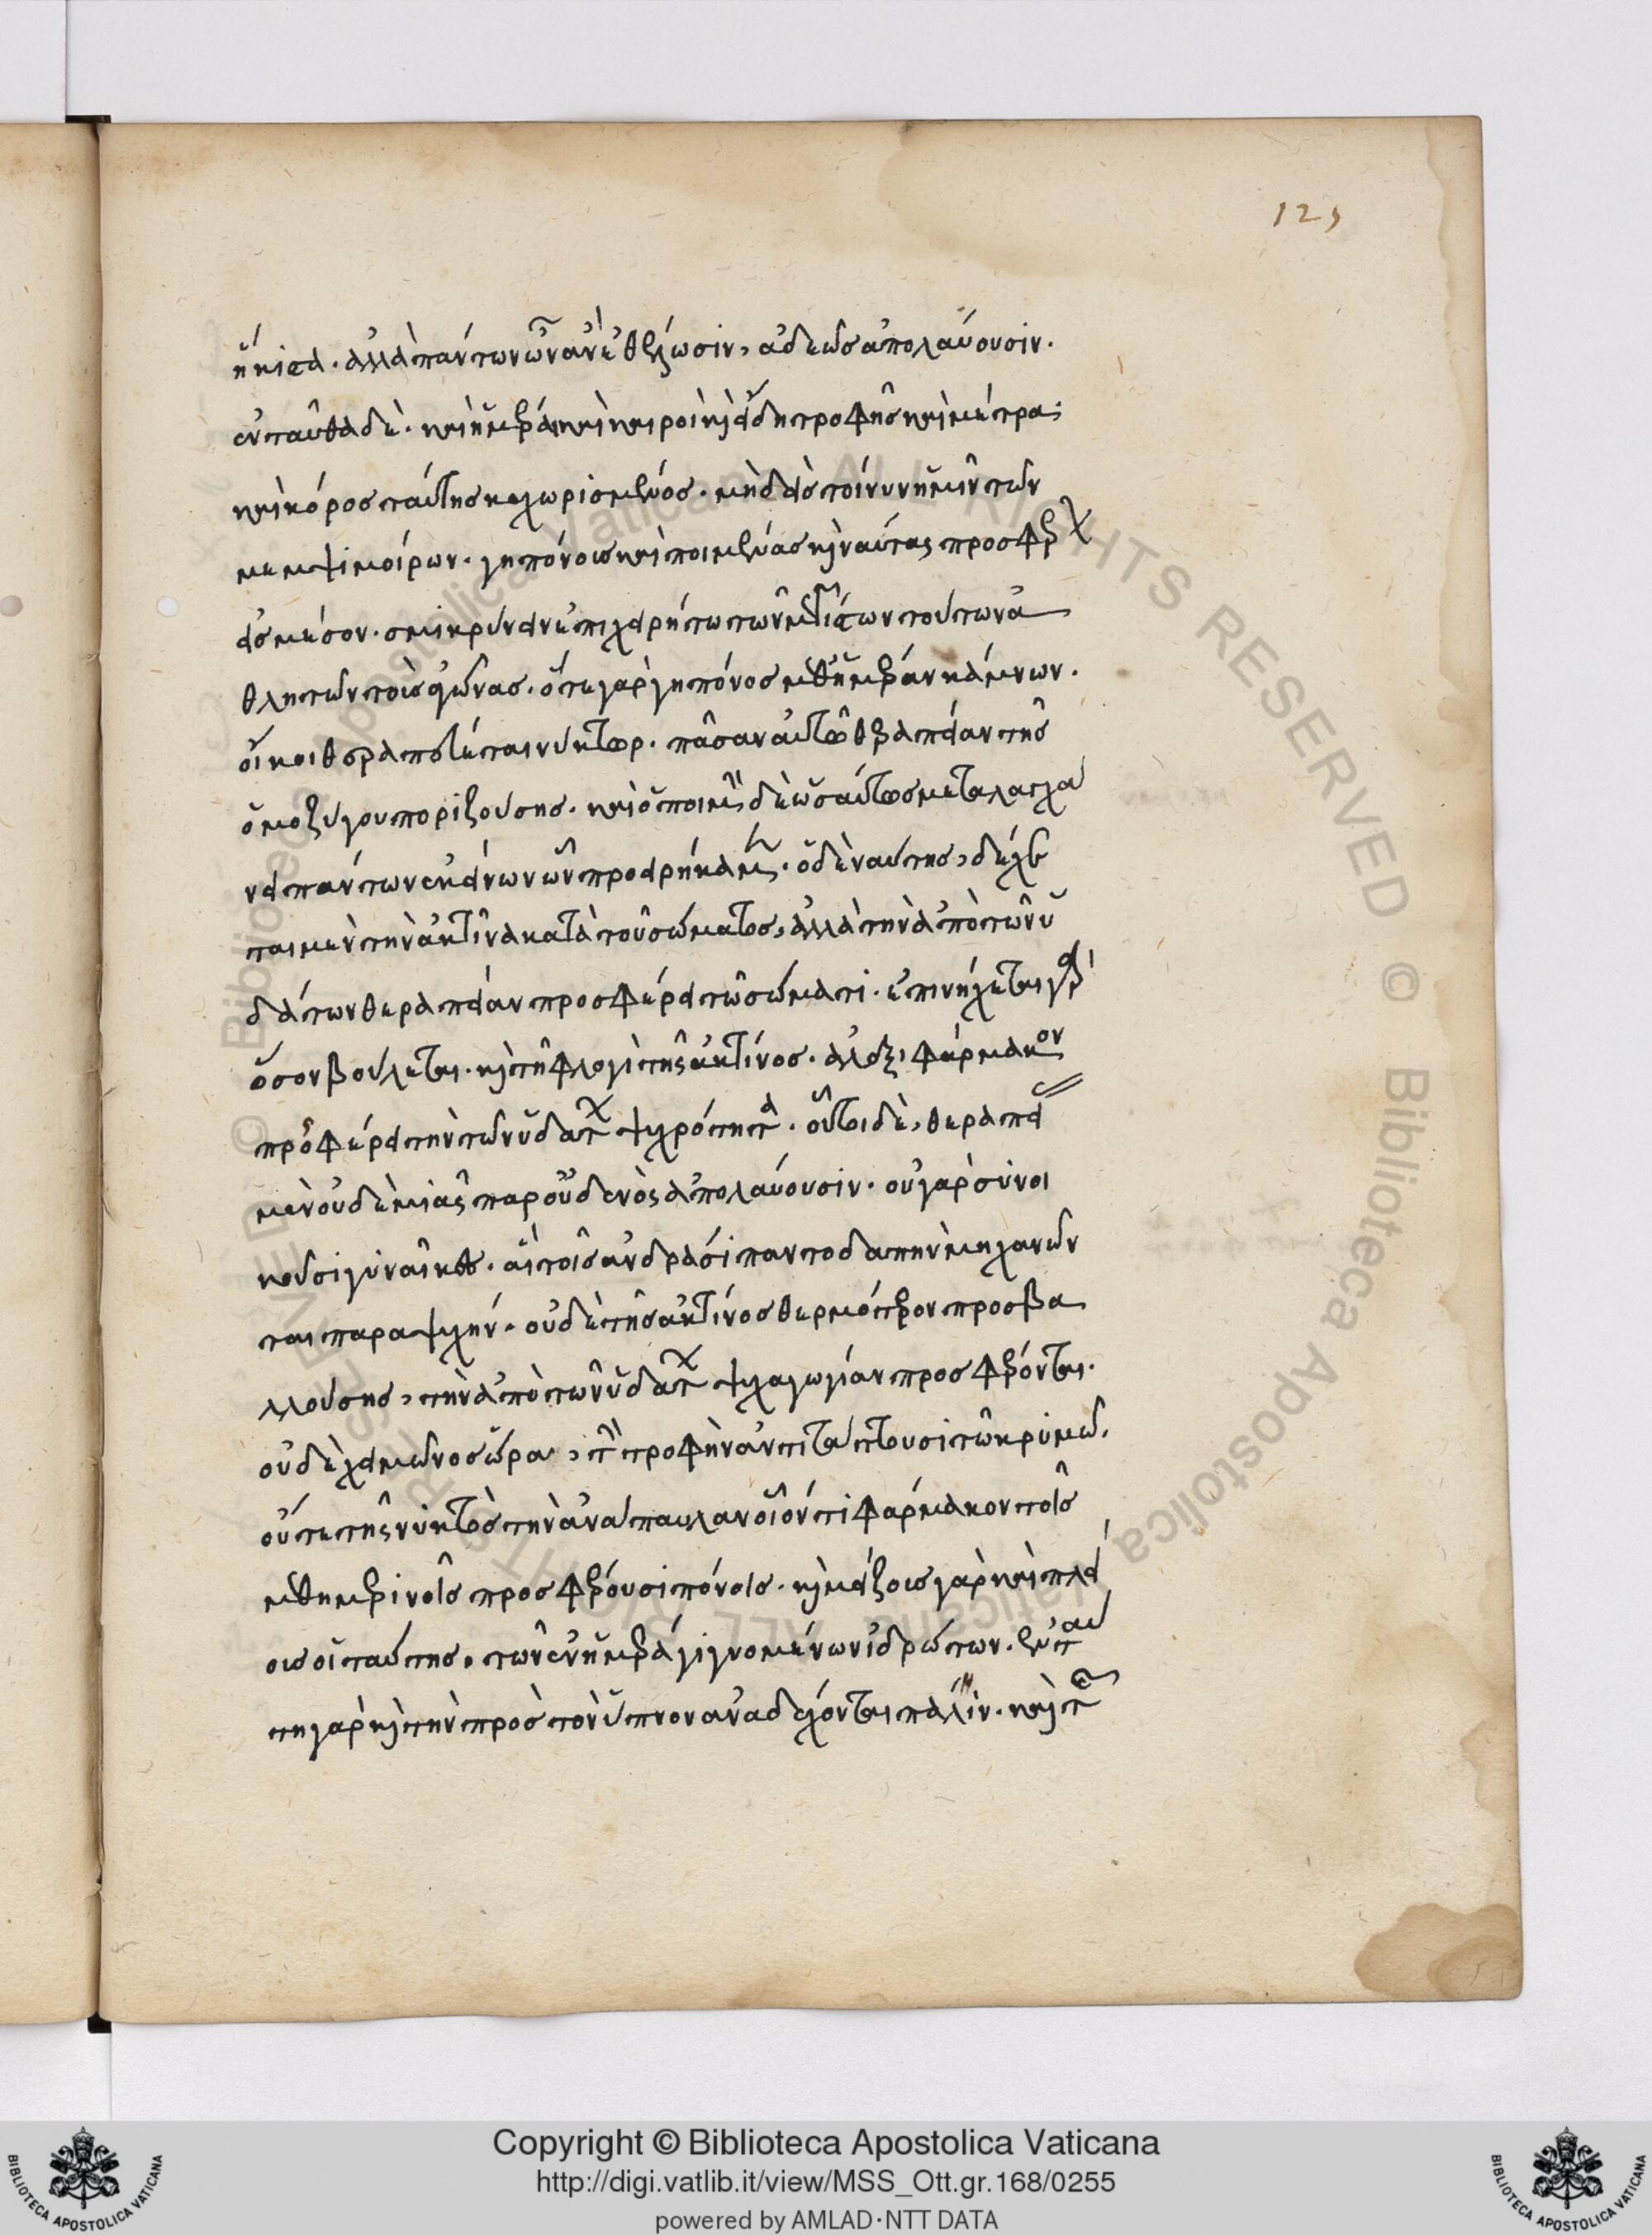 125
ἥκιστα · ἀλλὰ πάντων ὧν ἂν ἐθέλωσιν, ἀδεῶς ἀπολαύουσιν.
ἐνταῦθα δὲ · καὶ ἡμέρα καὶ καιροὶ καὶ εἴδη τροφῆς καὶ μέτρα·
καὶ κόρος ταύτης κεχωρισμένος · μηδεὶς τοίνυν ἡμῖν τῶν
μεμψιμοίρων · γηπόνους καὶ ποιμένας καὶ ναύτας προσφερ
εἰς μέσον · σμικρύνειν ἐπιχειρείτω τῶν τούτων ἀ
θλητῶν τοὺς ἀγῶνας · ὅ τε γὰρ γηπόνος μεθημέραν κάμνων.
οἴκοι θεραπεύεται νύκτωρ · πᾶσαν αὐτῶ θεραπείαν τῆς
ὁμοζύγου ποριζούσης · καὶ ὁ ποιμὴν δὲ ὡσαύτως μεταλαγχά
νει πάντων ἐκείνων ὧν προειρήκαμεν · ὁ δὲ ναύτης, δέχε
ται μὲν τὴν ἀκτῖνα κατὰ τοῦ σώματος, ἀλλὰ τὴν ἀπὸ τῶν ὑ
δάτων θεραπείαν προσφέρει τῶ σώματι · ἐπινήχεται γὰρ
ὅσον βούλεται · καὶ τῆ φλογὶ τῆς ἀκτῖνος · ἀλεξιφάρμακον
προσφέρει τὴν τῶν ὑδάτων ψυχρότητα · οὗτοι δὲ, θεραπεί
μὲν οὐδεμιᾶς παρ' οὐδενὸς ἀπολαύουσιν · οὐ γὰρ σύνοι
κοῦσι γυναῖκες · αἳ τοῖς ἀνδράσι παντοδαπὴν μηχανῶν
ται παραψυχήν · οὐδὲ τῆς ἀκτῖνος θερμότερον προσβα
λλούσης, τὴν ἀπὸ τῶν ὑδάτων ψυχαγωγίαν προσφέρονται.
οὐδὲ χειμῶνος ὥρα, τὴν τροφὴν ἀντιτάττουσι τῶ κρυμῶ.
οὔτε τῆς νυκτὸς τὴν ἀνάπαυλαν οἷόν τι φάρμακον τοῖς
μεθημερινοῖς προσφέρουσι πόνοις · καὶ μείζους γὰρ καὶ πλεί
ους οἱ ταύτης, τῶν ἐν ἡμέρα γιγνομένων ἱδρώτων · ἐν ταύ
τη γὰρ καὶ τὴν πρὸς τὸν ὕπνον ἀναδέχονται πάλην · καὶ
Copyright © Biblioteca Apostolica Vaticana
http://digi.vatlib.it/view/MSS_Ott.gr.168/0255
powered by AMLAD·NTT DATA
BIBLIOTECA APOSTOLICA VATICANA
BIBLIOTECA APOSTOLICA VATICANA